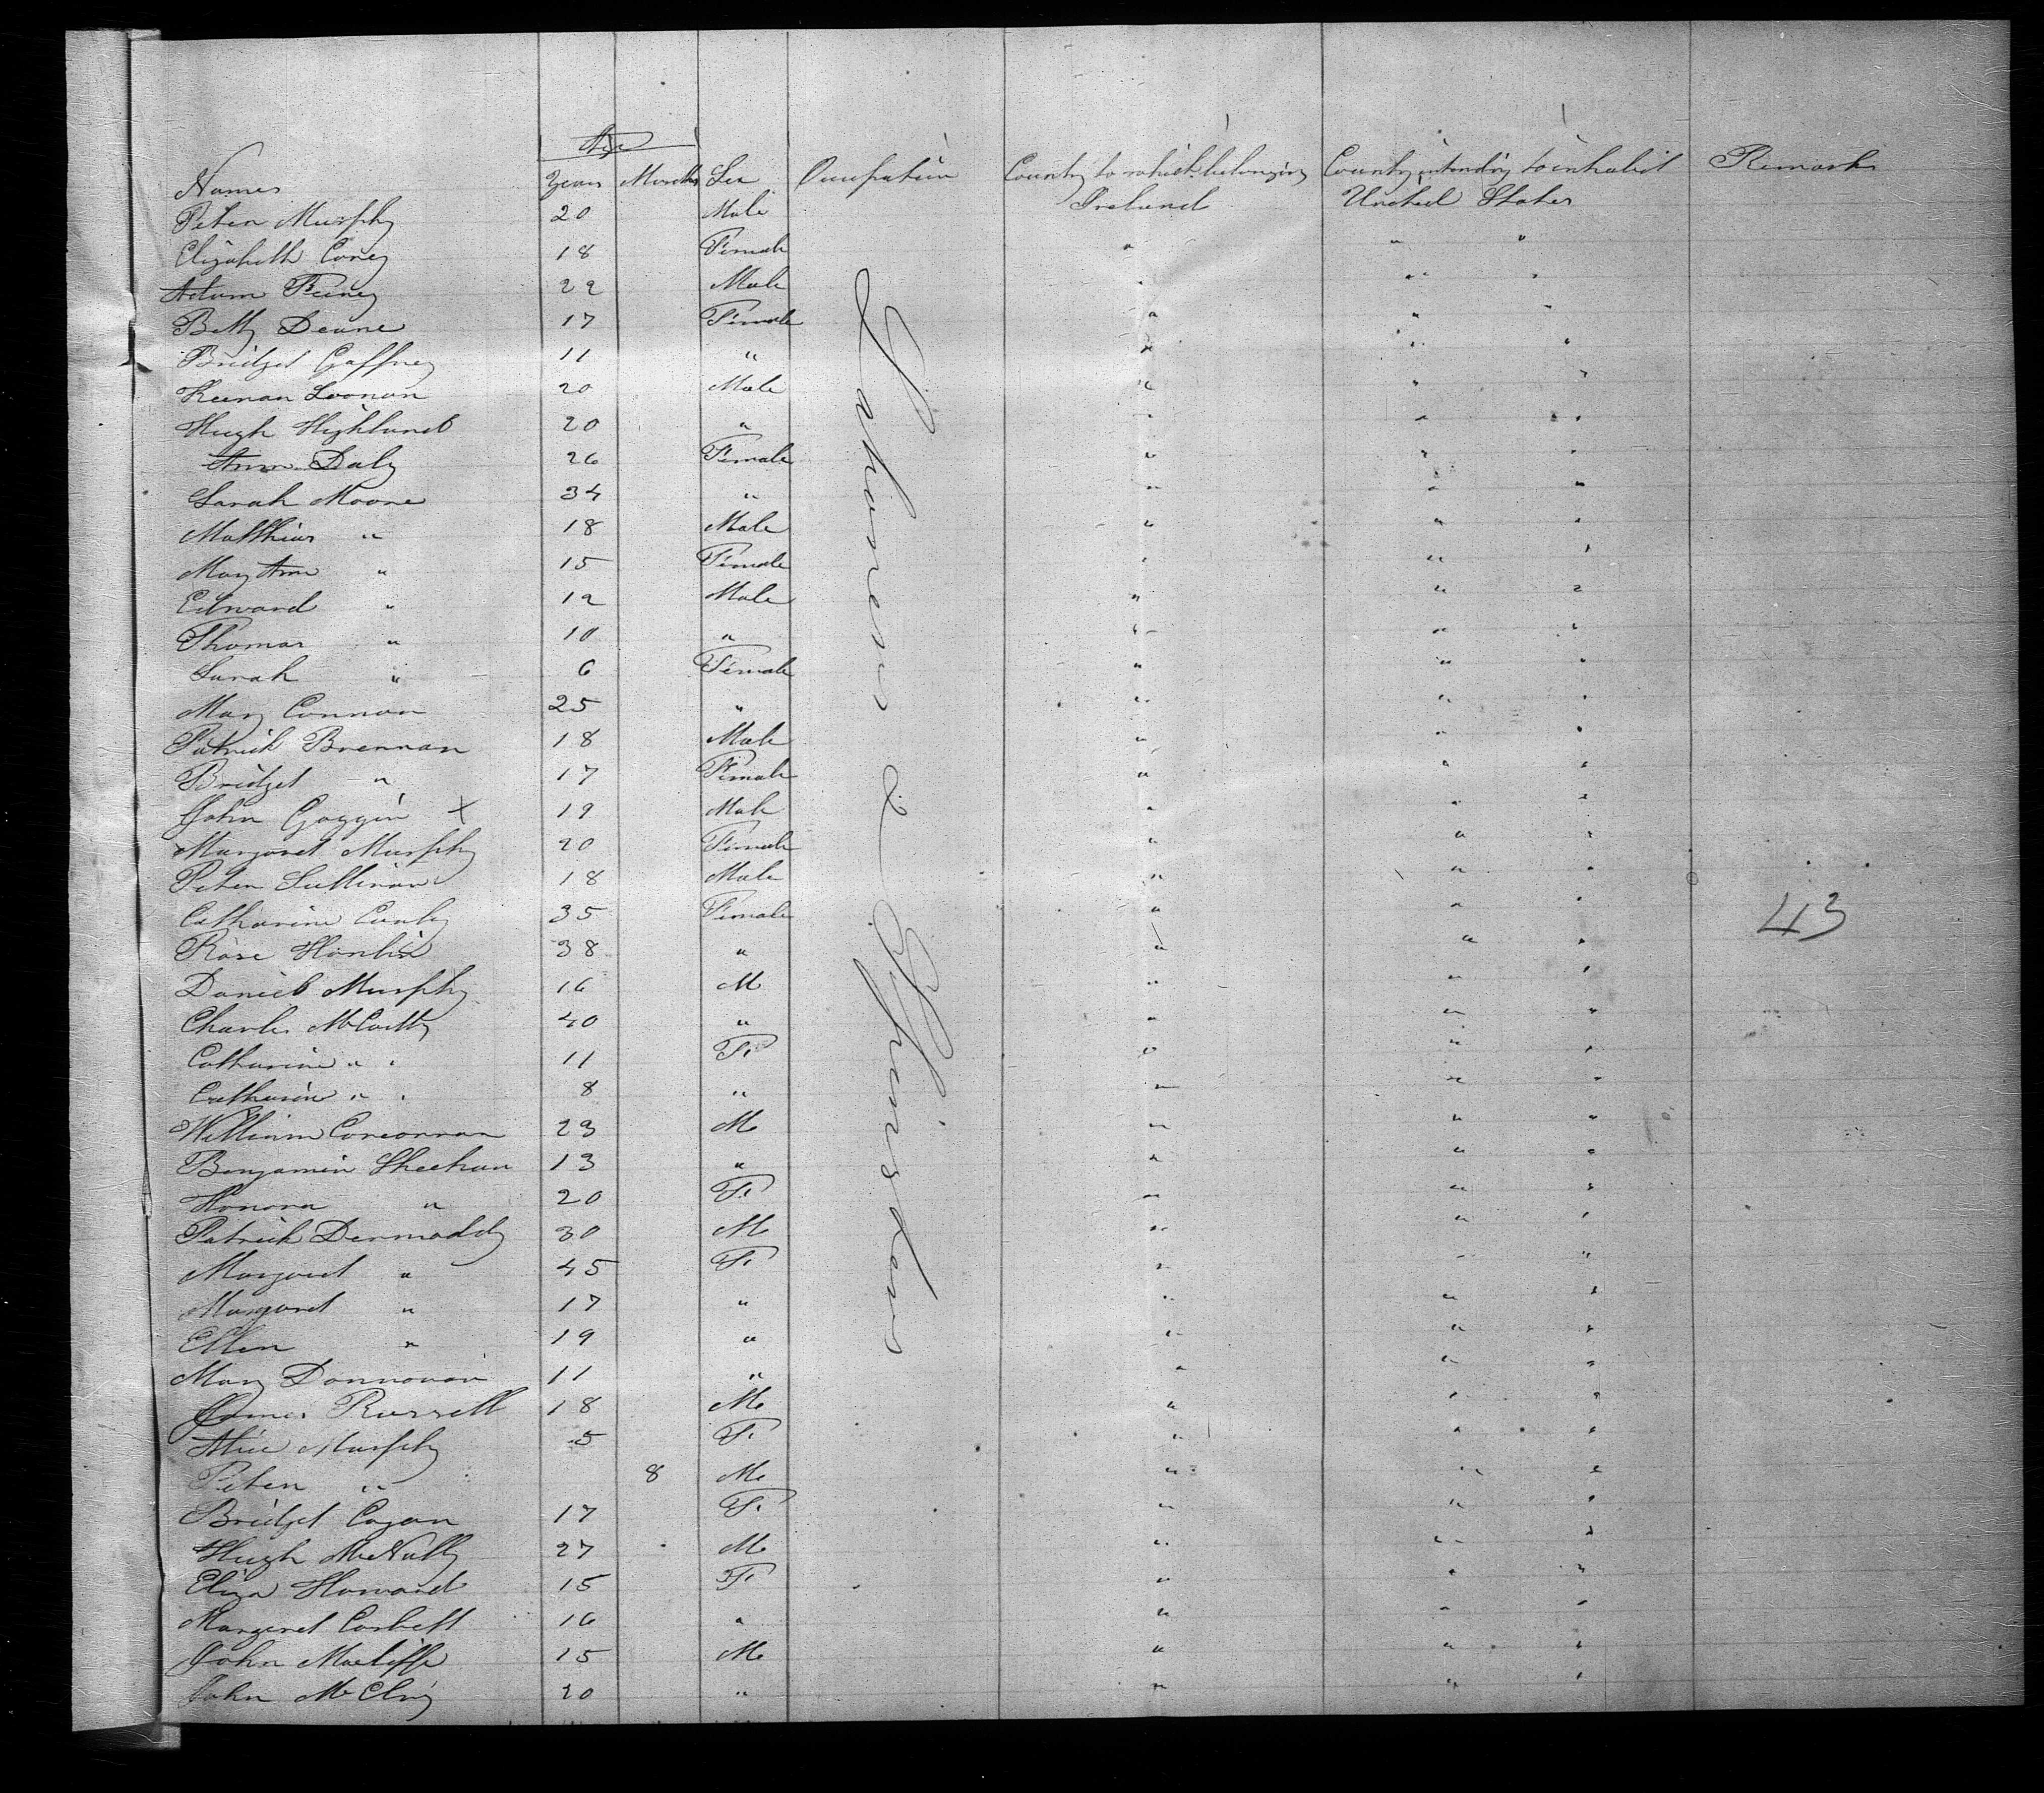 Age
Names Years Months Sex Occupation Country to which belonging Country intending to inhabit Remarks
Peter Murphy 20 Male Ireland United States
Elizabeth Corey 18 Female " " "
Adam Feeney 22 Male " " "
Betty Deane 17 Female " " "
Bridget Gaffney 11 " " " "
Keenan Loonan 20 Male " " "
Hugh Highland 20 " " " "
Ann Daly 26 Female " " "
Sarah Moore 34 " " " "
Matthias " 18 Male " " "
Mary Ann " 15 Female " " "
Edward " 12 Male " " "
Thomas " 10 " " " "
Sarah " 6 Female " " "
Mary Connor 25 " " " "
Patrick Brennan 18 Male " " "
Bridget " 17 Female " " "
John Goggin X 19 Male " " "
Margaret Murphy 20 Female " " "
Peter Sullivan 18 Male " " "
Catharine Conly 35 Female " " "
Rose 38 " " " "
43
Daniel Murphy 16 M " " "
Charles McCarthy 40 " " " "
Catharine " " 11 F " " "
Catharine " " 8 " " " "
William Corcorran 23 M " " "
Benjamin Sheehan 13 " " " "
Honora " 20 F " " "
Patrick Dermoddy 30 M " " "
Margaret " 45 F " " "
Margaret " 17 " " " "
Ellen " 19 " " " "
Mary Donnovan 11 " " " "
James Russell 18 M " " "
Alice Murphy 5 F " " "
Peter " 8 M " " "
Bridget Cogan 17 F " " "
Hugh McNally 27 M " " "
Eliza Howard 15 F " " "
Margaret Corbett 16 " " " "
John 15 M " " "
John 20 " " " "
Labourers & Spinsters